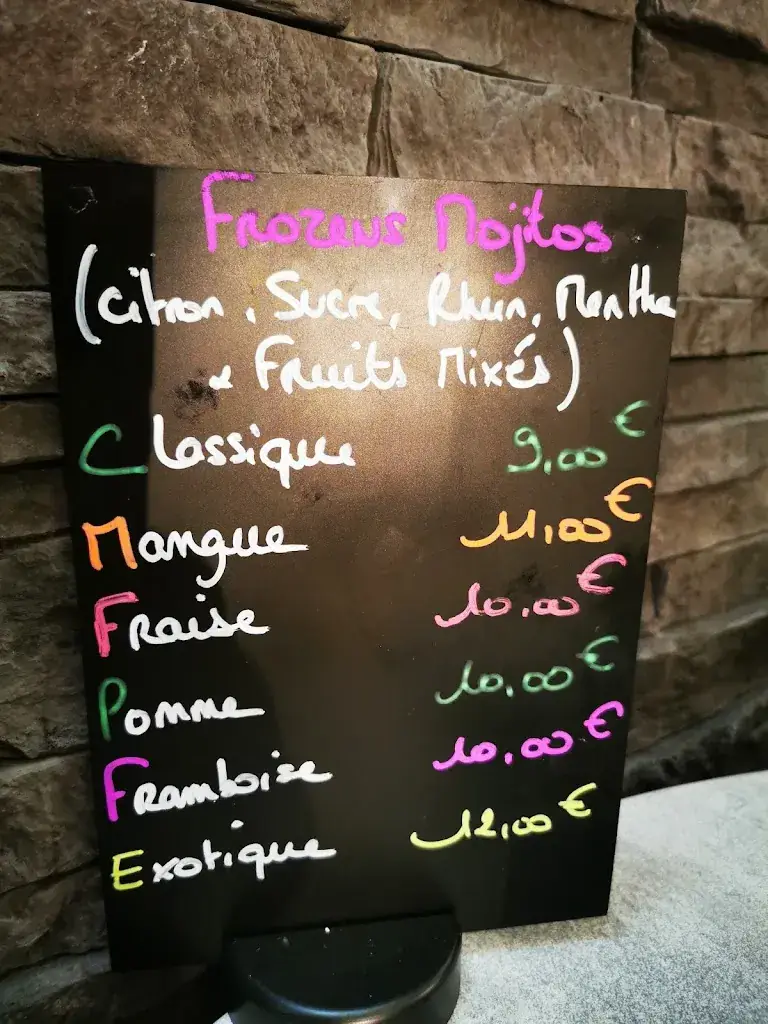 Frozens Mojitos
(citron, Sucre, Rhum, Menthe
& Fruits Mixés)
Classique 9,00€
Mangue 11,00€
Fraise 10,00€
Pomme 10,00€
Framboise 10,00€
Exotique 12,00€